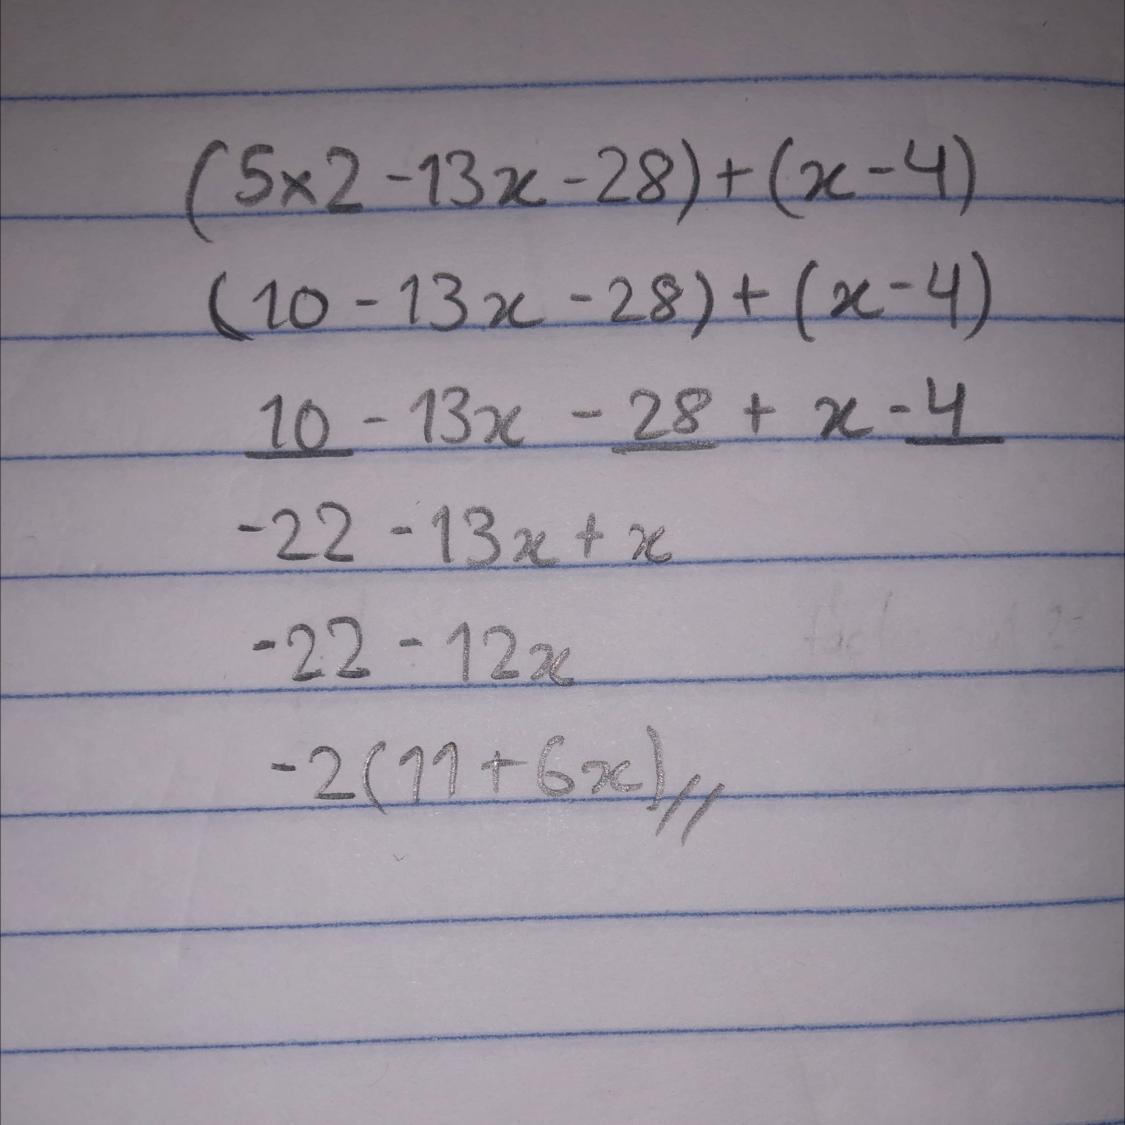 (5×2-13x-28)+(x-4)
(10-13x-28)+(x-4)
10-13x-28+x-4
-22-13x+x
-22-12x
-2(11+6x)//